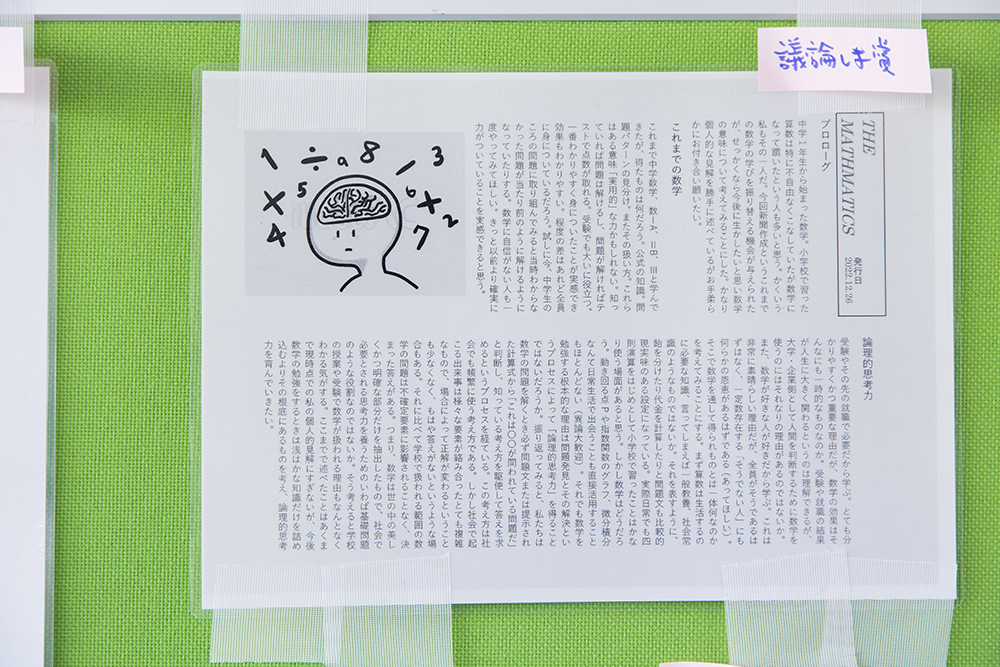 議論しま賞
THE
MATHMATICS
発行日
2022.12.26
プロローグ
中学1年生から始まった数学。小学校で習った
算数は特に不自由なくこなしていたが数学に
なって躓いたという人も多いと思う。かくいう
私もその一人だ。今回新聞作成というこれまで
の数学の学びを振り替える機会が与えられた
が、せっかくなら今後に生かしたいと思い数学
の意味について考えてみることにした。かなり
個人的な見解を勝手に述べているがお手柔ら
かにお付き合い願いたい。
これまでの数学
これまで中学数学、数ⅠA、ⅡB、Ⅲと学んで
きたが、得たものは何だろう。公式の知識、問
題パターンの見分け、またその扱い方。これら
はある意味「実用的」な力かもしれない。知っ
ていれば問題は解けるし、問題が解ければテ
ストで点数が取れる。受験でも大いに役立つ。
一番わかりやすく身についたことが実感でき
効果もわかりやすい。程度の差はあれど全員
に身についているだろう。試しに今、中学生の
ころの問題に取り組んでみると当時わからな
かった問題が当たり前のように解けるように
なっていたりする。数学に自信がない人も一
度やってみてほしい。きっと以前より確実に
力がついていることを実感できると思う。
1 ÷ 9 8 / 3
5 6
× + 2
4 7
論理的思考力
受験やその先の就職で必要だから学ぶ。とても分
かりやすくかつ重要な理由だが、数学の効果はそ
んなにも一時的なものなのか。受験や就職の結果
が人生に大きく関わるというのは理解できるが、
大学・企業側として人間を判断するために数学を
使うのにはそれなりの理由があるのではないか。
また、数学が好きな人が好きだから学ぶ。これは
非常に素晴らしい理由だが、全員がそうであるは
ずはなく、一定数存在する「そうでない人」にも
何らかの恩恵があるはずである（あってほしい）。
そこで数学を通して得られるものとは一体何なのか
を考えてみることにする。まず算数は生活するの
に必要な知識、言ってしまえば一般教養、社会常
識のようなものではないか。それを表すように、
飴を分けたり代金を計算したりと問題文も比較的
現実味のある設定になっている。実際日常でも四
則演算をはじめとして小学校で習ったことはかな
り使う場面があると思う。しかし数学はどうだろ
う。動き回る点Pや指数関数のグラフ、微分積分
なんて日常生活で出会うことも直接活用すること
もほとんどない（異論大歓迎）。それでも数学を
勉強する根本的な理由は問題発見とその解決とい
うプロセスによって「論理的思考力」を得ること
ではないだろうか。振り返ってみると、私たちは
数学の問題を解くとき必ず問題文または提示され
た計算式から「これは〇〇が問われている問題だ」
と判断し、知っている考え方を駆使して答えを求
めるというプロセスを経ている。この考え方は社
会でも頻繁に使う考え方である。しかし社会で起
こる出来事は様々な要素が絡み合ったとても複雑
なもので、場合によって正解が変わるということ
も少なくなく、もはや答えがないというような場
合もある。それに比べて学校で扱われる範囲の数
学の問題は不確定要素に影響されることなく、決
まった答えがある。つまり、数学は世の中の美し
くかつ明確な部分だけを抽出したもので、社会で
必要とされる思考力を養うためのいわば基礎問題
のような役割なのではないか。そう考えると学校
の授業や受験で数学が扱われる理由もなんとなく
わかる気がする。ここまでで述べたことはあくま
で現時点での私の個人的見解にすぎないが、今後
数学の勉強をするときは浅はかな知識だけを詰め
込むよりその根底にあるものを考え、論理的思考
力を育んでいきたい。